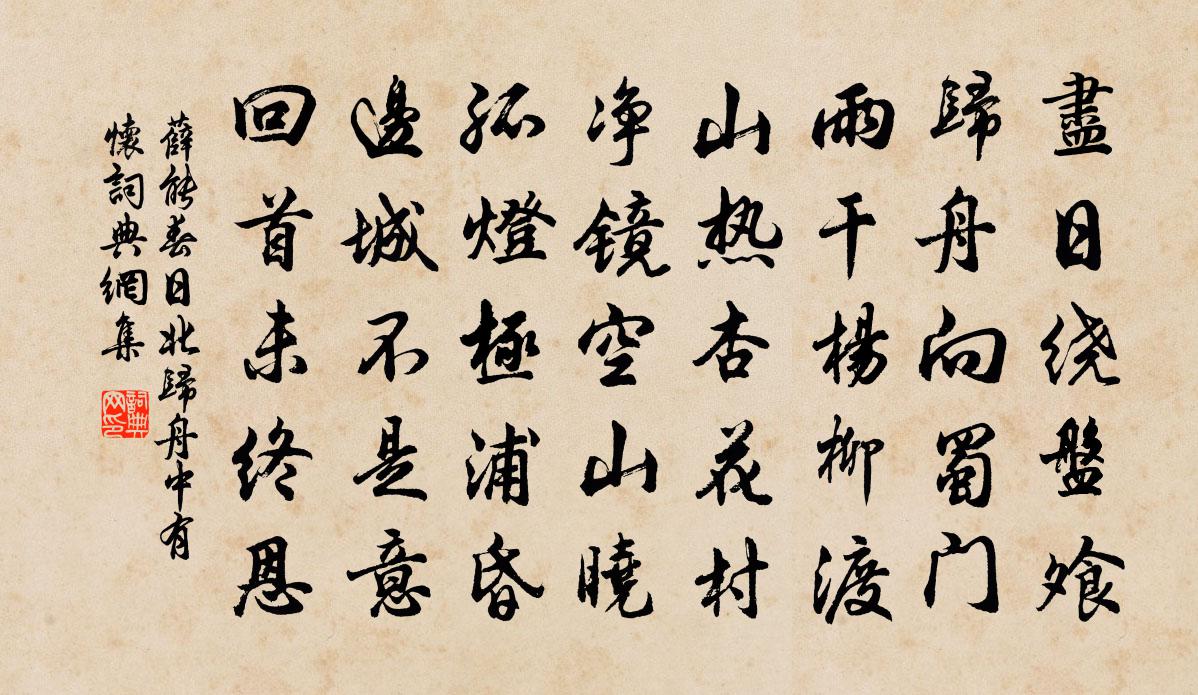 盡日绕盤飧
歸舟向蜀门
雨干楊柳渡
山热杏花村
净镜空山曉
孤燈極浦昏
邊城不是意
回首未终恩
薛能春日北歸舟中有
懷詞典網集
詞典
网印